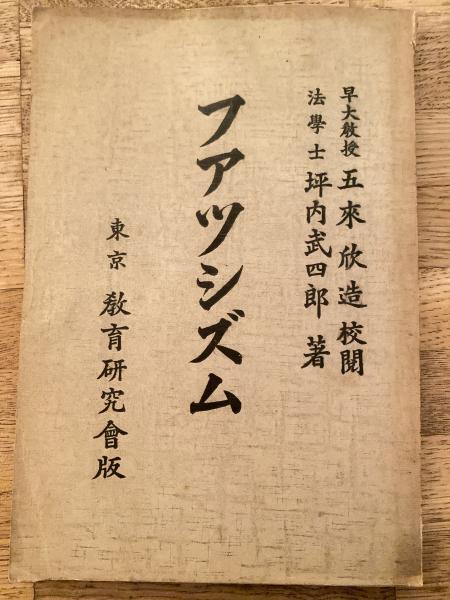 早大教授 五來欣造 校閲
法學士 坪内武四郎 著
フアツシズム
東京 教育研究會版